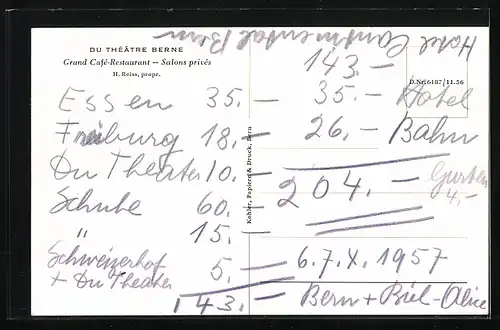 Hotel Continental Bern
DU THÉÂTRE BERNE
Grand Café-Restaurant – Salons privés
H. Reiss, propr.
D.Nr. 6187/11.56
Essen 35.–
Freiburg 18.–
Du Theater 10.–
Schuhe 60.–
" 15.–
Schweizerhof
+ Du Theater 5.–
143.–
Kohler, Papierg & Druck, Bern
143.–
35.– Hotel
26.– Bahn
204.–
Gurten
4.–
6.7.X.1957
Bern + Biel-Alice